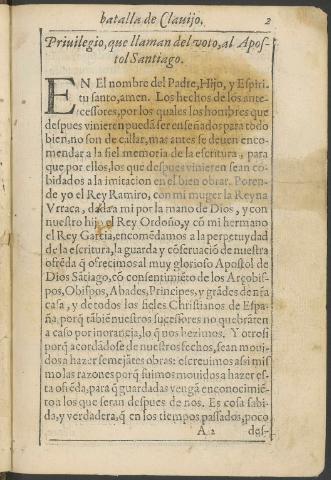 batalla de Clauijo. 2
Priuilegio, que llaman del voto, al Apos-
tol Santiago.
EN El nombre del Padre, Hijo, y Espiri
tu santo, amen. Los hechos de los ante-
cessores, por los quales los hombres que
despues vinieren puedã ser enseñados para todo
bien, no son de callar, mas antes se deuen enco-
mendar a la fiel memoria de la escritura, para
que por ellos, los que despues vinieren sean cõ
bidados a la imitacion en el bien obrar. Poren-
de yo el Rey Ramiro, con mi muger la Reyna
Vrraca, dada a mi por la mano de Dios, y con
nuestro hijo el Rey Ordoño, y cõ mi hermano
el Rey Garcia, encomẽdamos a la perpetuydad
de la escritura, la guarda y cõseruaciõ de nuestra
ofrẽda q̃ ofrecimos al muy glorioso Apostol de
Dios Sãtiago, cõ consentimiẽto de los Arçobis-
pos, Obispos, Abades, Principes, y grãdes de nr̃a
casa, y de todos los fieles Christianos de Espa-
ña, porq̃ tãbiẽ nuestros sucessores no quebrãten
a caso por inorancia, lo q̃ nos hezimos. Y otrosi
porq̃ acordãdose de nuestros fechos, sean moui-
dos a hazer semejãtes obras: escreuimos assi mis
mo las razones porq̃ fuimos mouidos a hazer es-
ta ofrẽda, para q̃ guardadas vengã en conocimiẽ-
to a los que seran despues de nos. Es cosa sabi-
da, y verdadera, q̃ en los tiempos passados, poco
A 2 des-